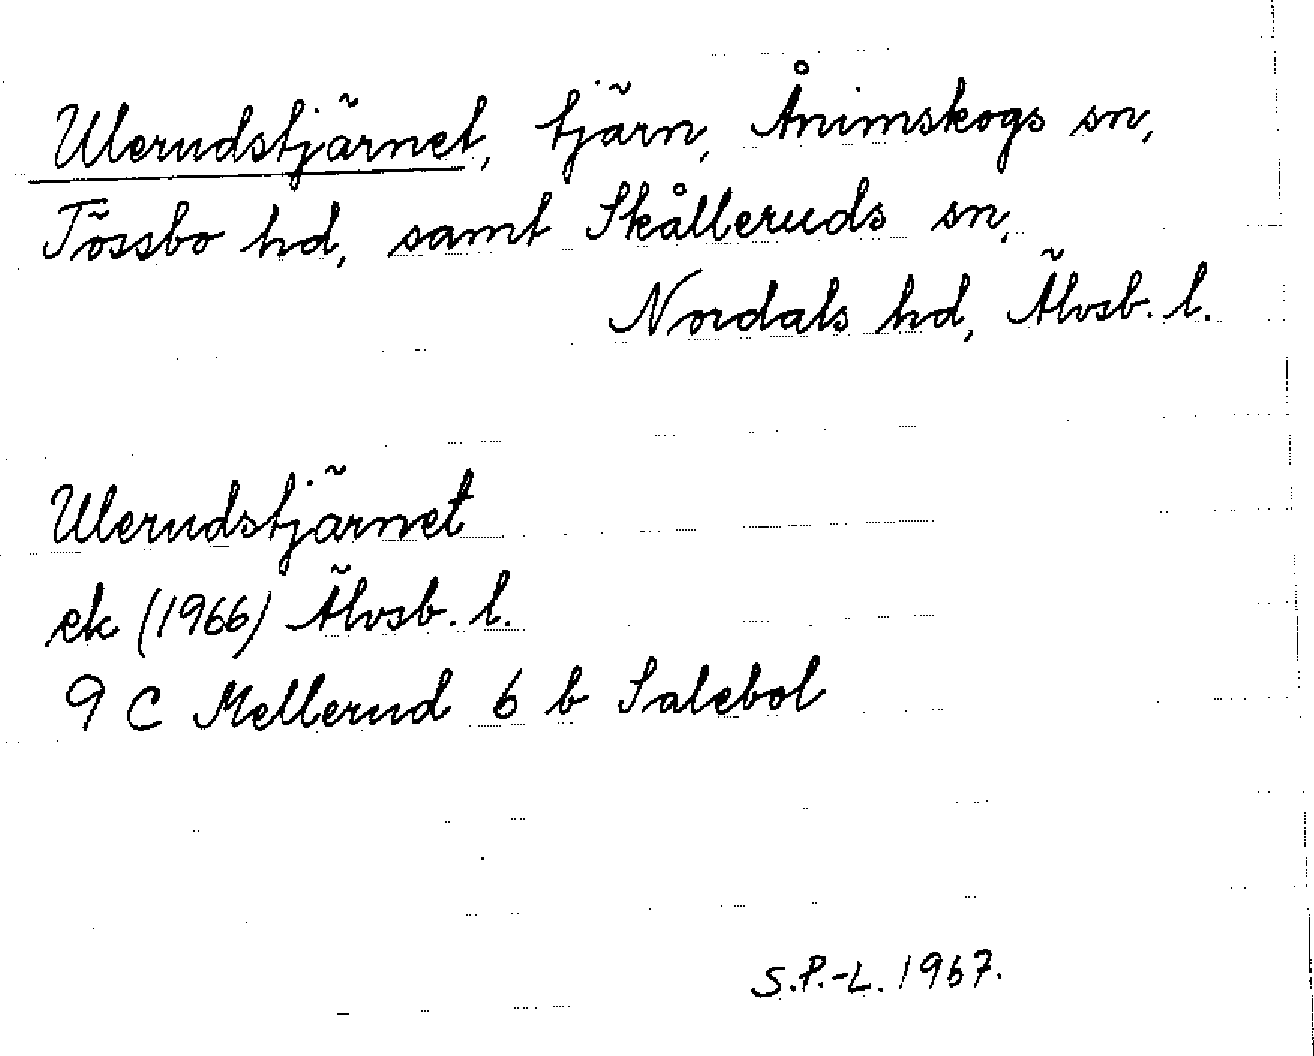 Ulerudstjärnet, tjärn, Ånimskogs sn,
Tössbo hd, samt Skålleruds sn,
Nordals hd, Älvsb. l.
Ulerudstjärnet
ek (1966) Älvsb. l.
9 C Mellerud 6 b Salebol
S.P.-L. 1967.